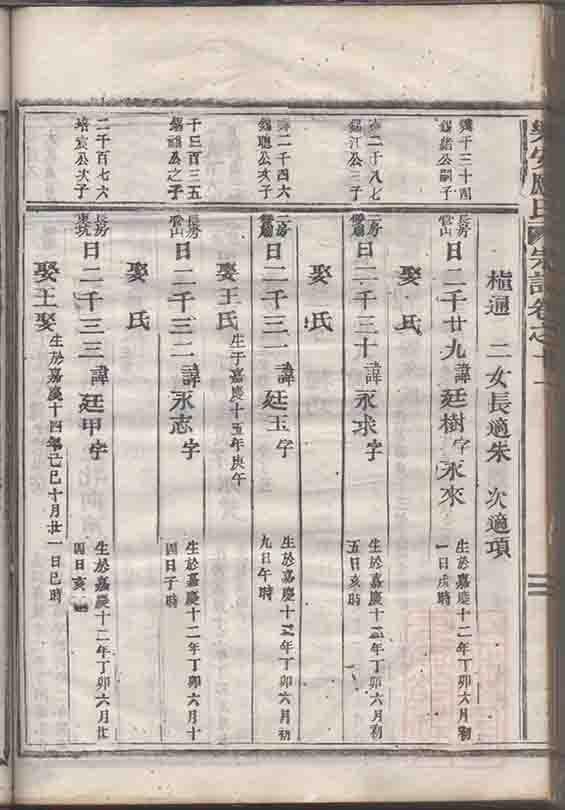 樂安應氏宗譜卷之十一
植通 二女長適朱 次適項
千三十四
錫緒公嗣子
長房
雲山
日二千廿九諱廷樹字永來
生於嘉慶十二年丁卯六月初
一日戌時
娶 氏
二千八七
錫江公三子
日二千三十諱永求字
生於嘉慶十二年丁卯六月初
五日亥時
娶 氏
二千四六
錫聰公次子
日二千三一諱廷玉字
生於嘉慶十二年丁卯六月初
九日午時
娶王氏
生于嘉慶十五年庚午
千三百三五
錫福公之子
長房
雲山
日二千三二諱永志字
生於嘉慶十二年丁卯六月十
四日子時
娶 氏
二千百七六
培宸公次子
長房
東坑
日二千三三諱廷甲字
生於嘉慶十二年丁卯六月廿
四日亥時
娶王娶
生於嘉慶十四年己巳十月廿一日巳時